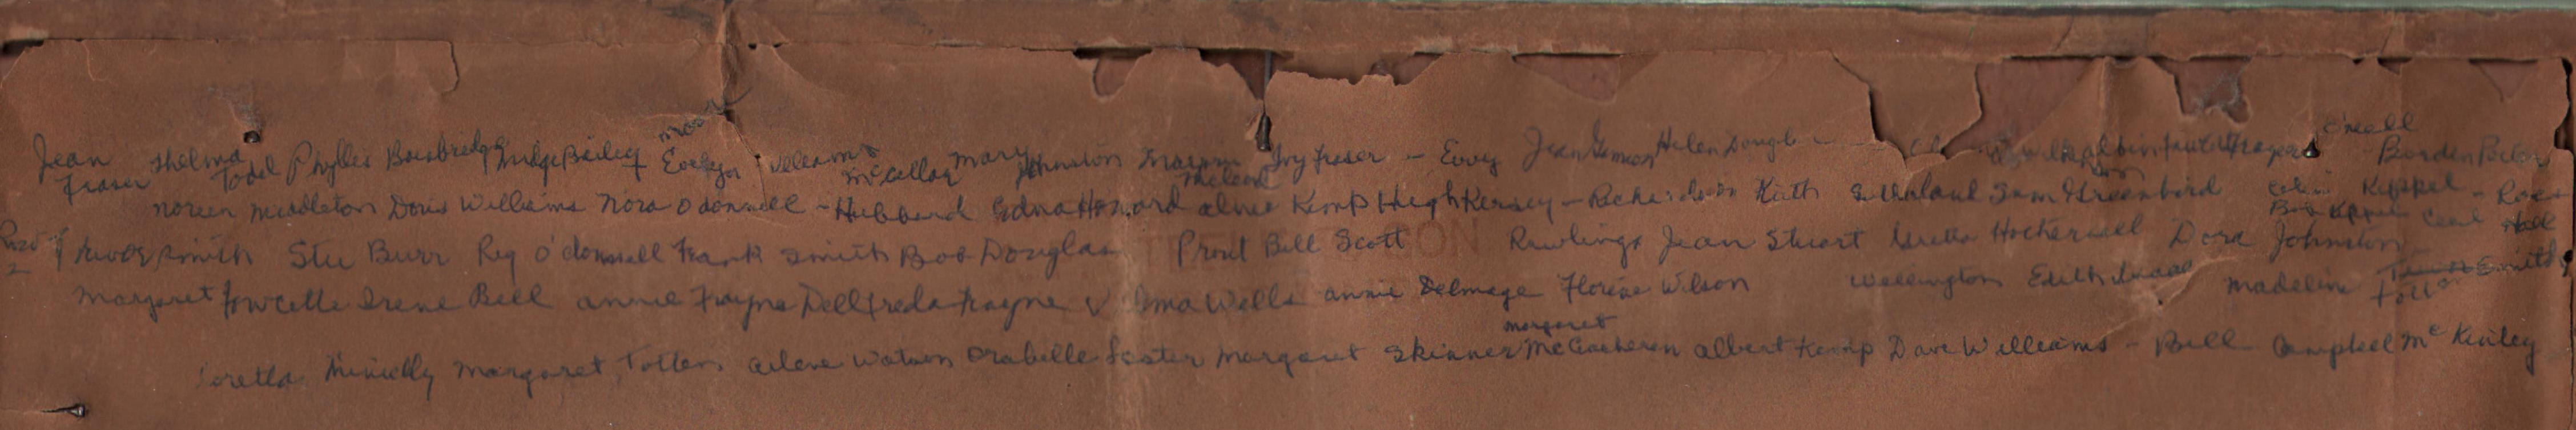 Jean Fraser Thelma Todd Phyllis Bainbridge Midge Bailey Evelyn Moore Williams McCallay Mary Johnston Marion McLeod Ivy Fraser - Evvy Jean Helen Dougl O'neill Borden
Noreen Middleton Doris Williams Nora O'donnell - Hubbard Edna Howard Kemp Hugh Kersey - Richardson Keith Sutherland Sam Greenbird Keppel - Ross
Row 2 Trevor Smith Stu Burr Reg O'donnell Frank Smith Bob Douglas Prout Bill Scott Rawlings Jean Stuart Dora Johnston Hall
Margaret Fowcette Irene Bell Annie Frayne Dell Freda Frayne Velma Wells Annie Delmage Florence Wilson Wellington Edith Madeline Smith
Loretta Margaret Totten Arlene Watson Orabelle Foster Margaret Skinner Margaret McEacheren Albert Kemp Dave Williams - Bill Campbell McKinley